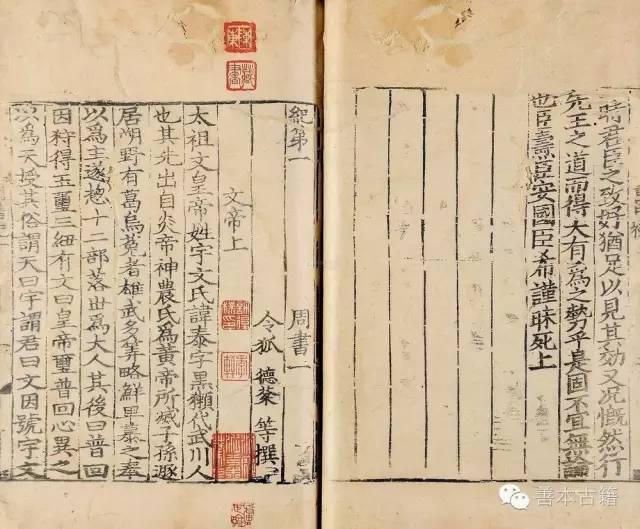 時君臣之攷好猶足以見其効又况慨然行
先王之道而得大有爲之勢乎是固不宜無述論
也臣燾臣安國臣希謹昧死上
紀第一
周書一
令狐 德棻 等撰
文帝上
太祖文皇帝姓宇文氏諱泰字黑獺代武川人
也其先出自炎帝神農氏爲黃帝所滅子孫遯
居朔野有葛烏菟者雄武多筭略鮮卑慕之奉
以爲主遂揔十二部落世爲大人其後曰普回
因狩得玉璽三紐有文曰皇帝璽普回心異之
以爲天授其俗謂天曰宇謂君曰文因號宇文
善本古籍